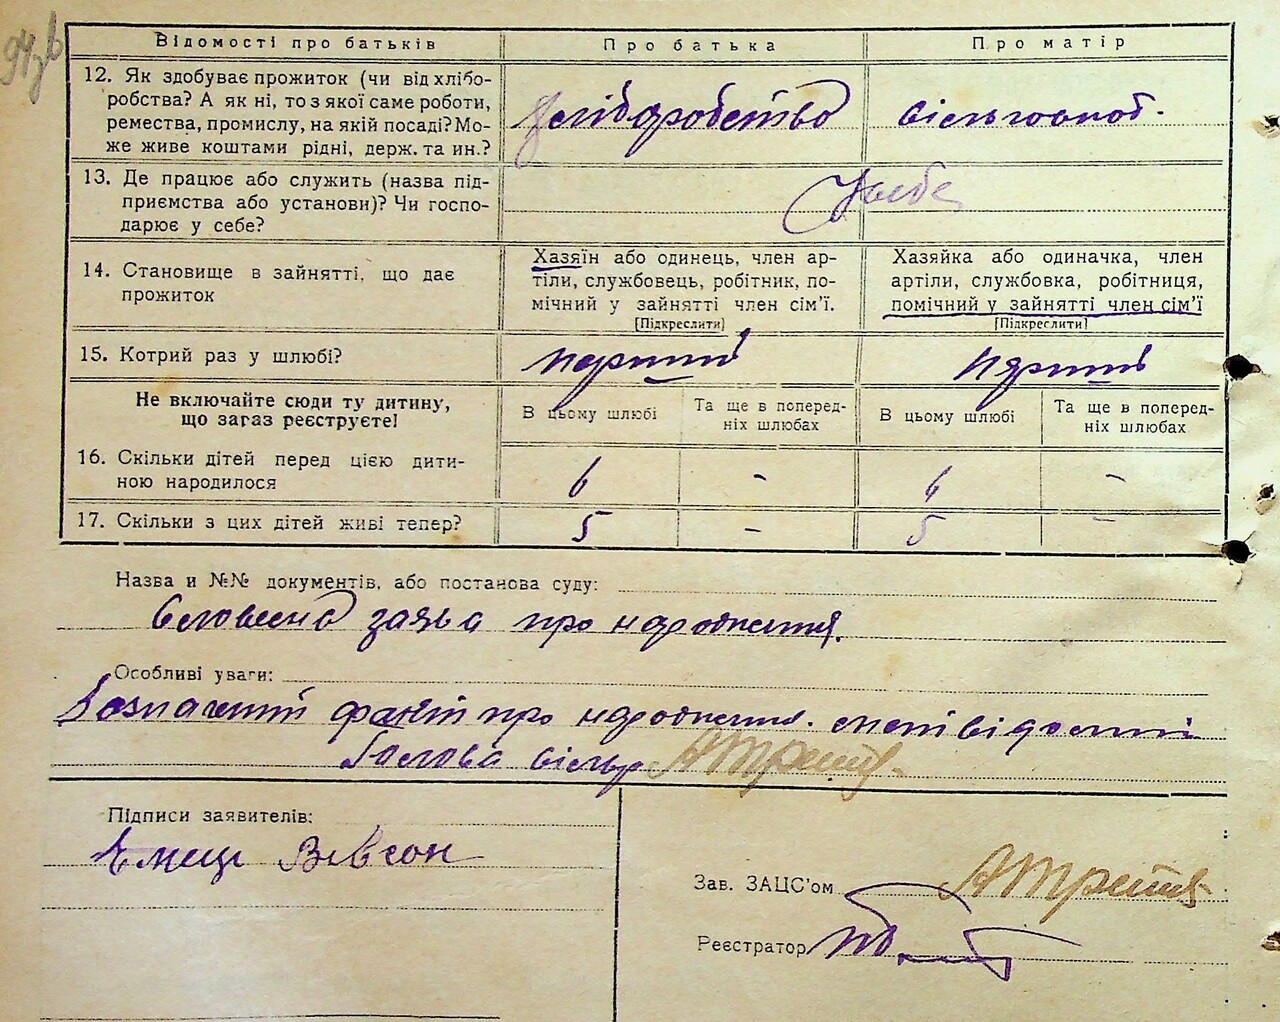 94зв
Відомості про батьків
Про батька
Про матір
12. Як здобуває прожиток (чи від хлібо-
робства? А як ні, то з якої саме роботи,
ремества, промислу, на якій посаді? Мо-
же живе коштами рідні, держ. та ин.?
хліборобство
сільгоспод.
13. Де працює або служить (назва під-
приємства або установи)? Чи госпо-
дарює у себе?
У себе
14. Становище в зайнятті, що дає
прожиток
Хазяїн або одинець, член ар-
тіли, службовець, робітник, по-
мічний у зайнятті член сім'ї.
[Підкреслити]
Хазяйка або одиначка, член
артіли, службовка, робітниця,
помічний у зайнятті член сім'ї
[Підкреслити]
15. Котрий раз у шлюбі?
перший
перший
Не включайте сюди ту дитину,
що загаз реєструєте!
В цьому шлюбі
Та ще в поперед-
ніх шлюбах
В цьому шлюбі
Та ще в поперед-
ніх шлюбах
16. Скільки дітей перед цією дити-
ною народилося
6 - 6 -
17. Скільки з цих дітей живі тепер?
5 - 5 -
Назва и №№ документів, або постанова суду:
Словесна заява про народження.
Особливі уваги:
Зазначений факт про народження
Голова сільр
Підписи заявителів:
Емець
Зав. ЗАЦС'ом
Реєстратор